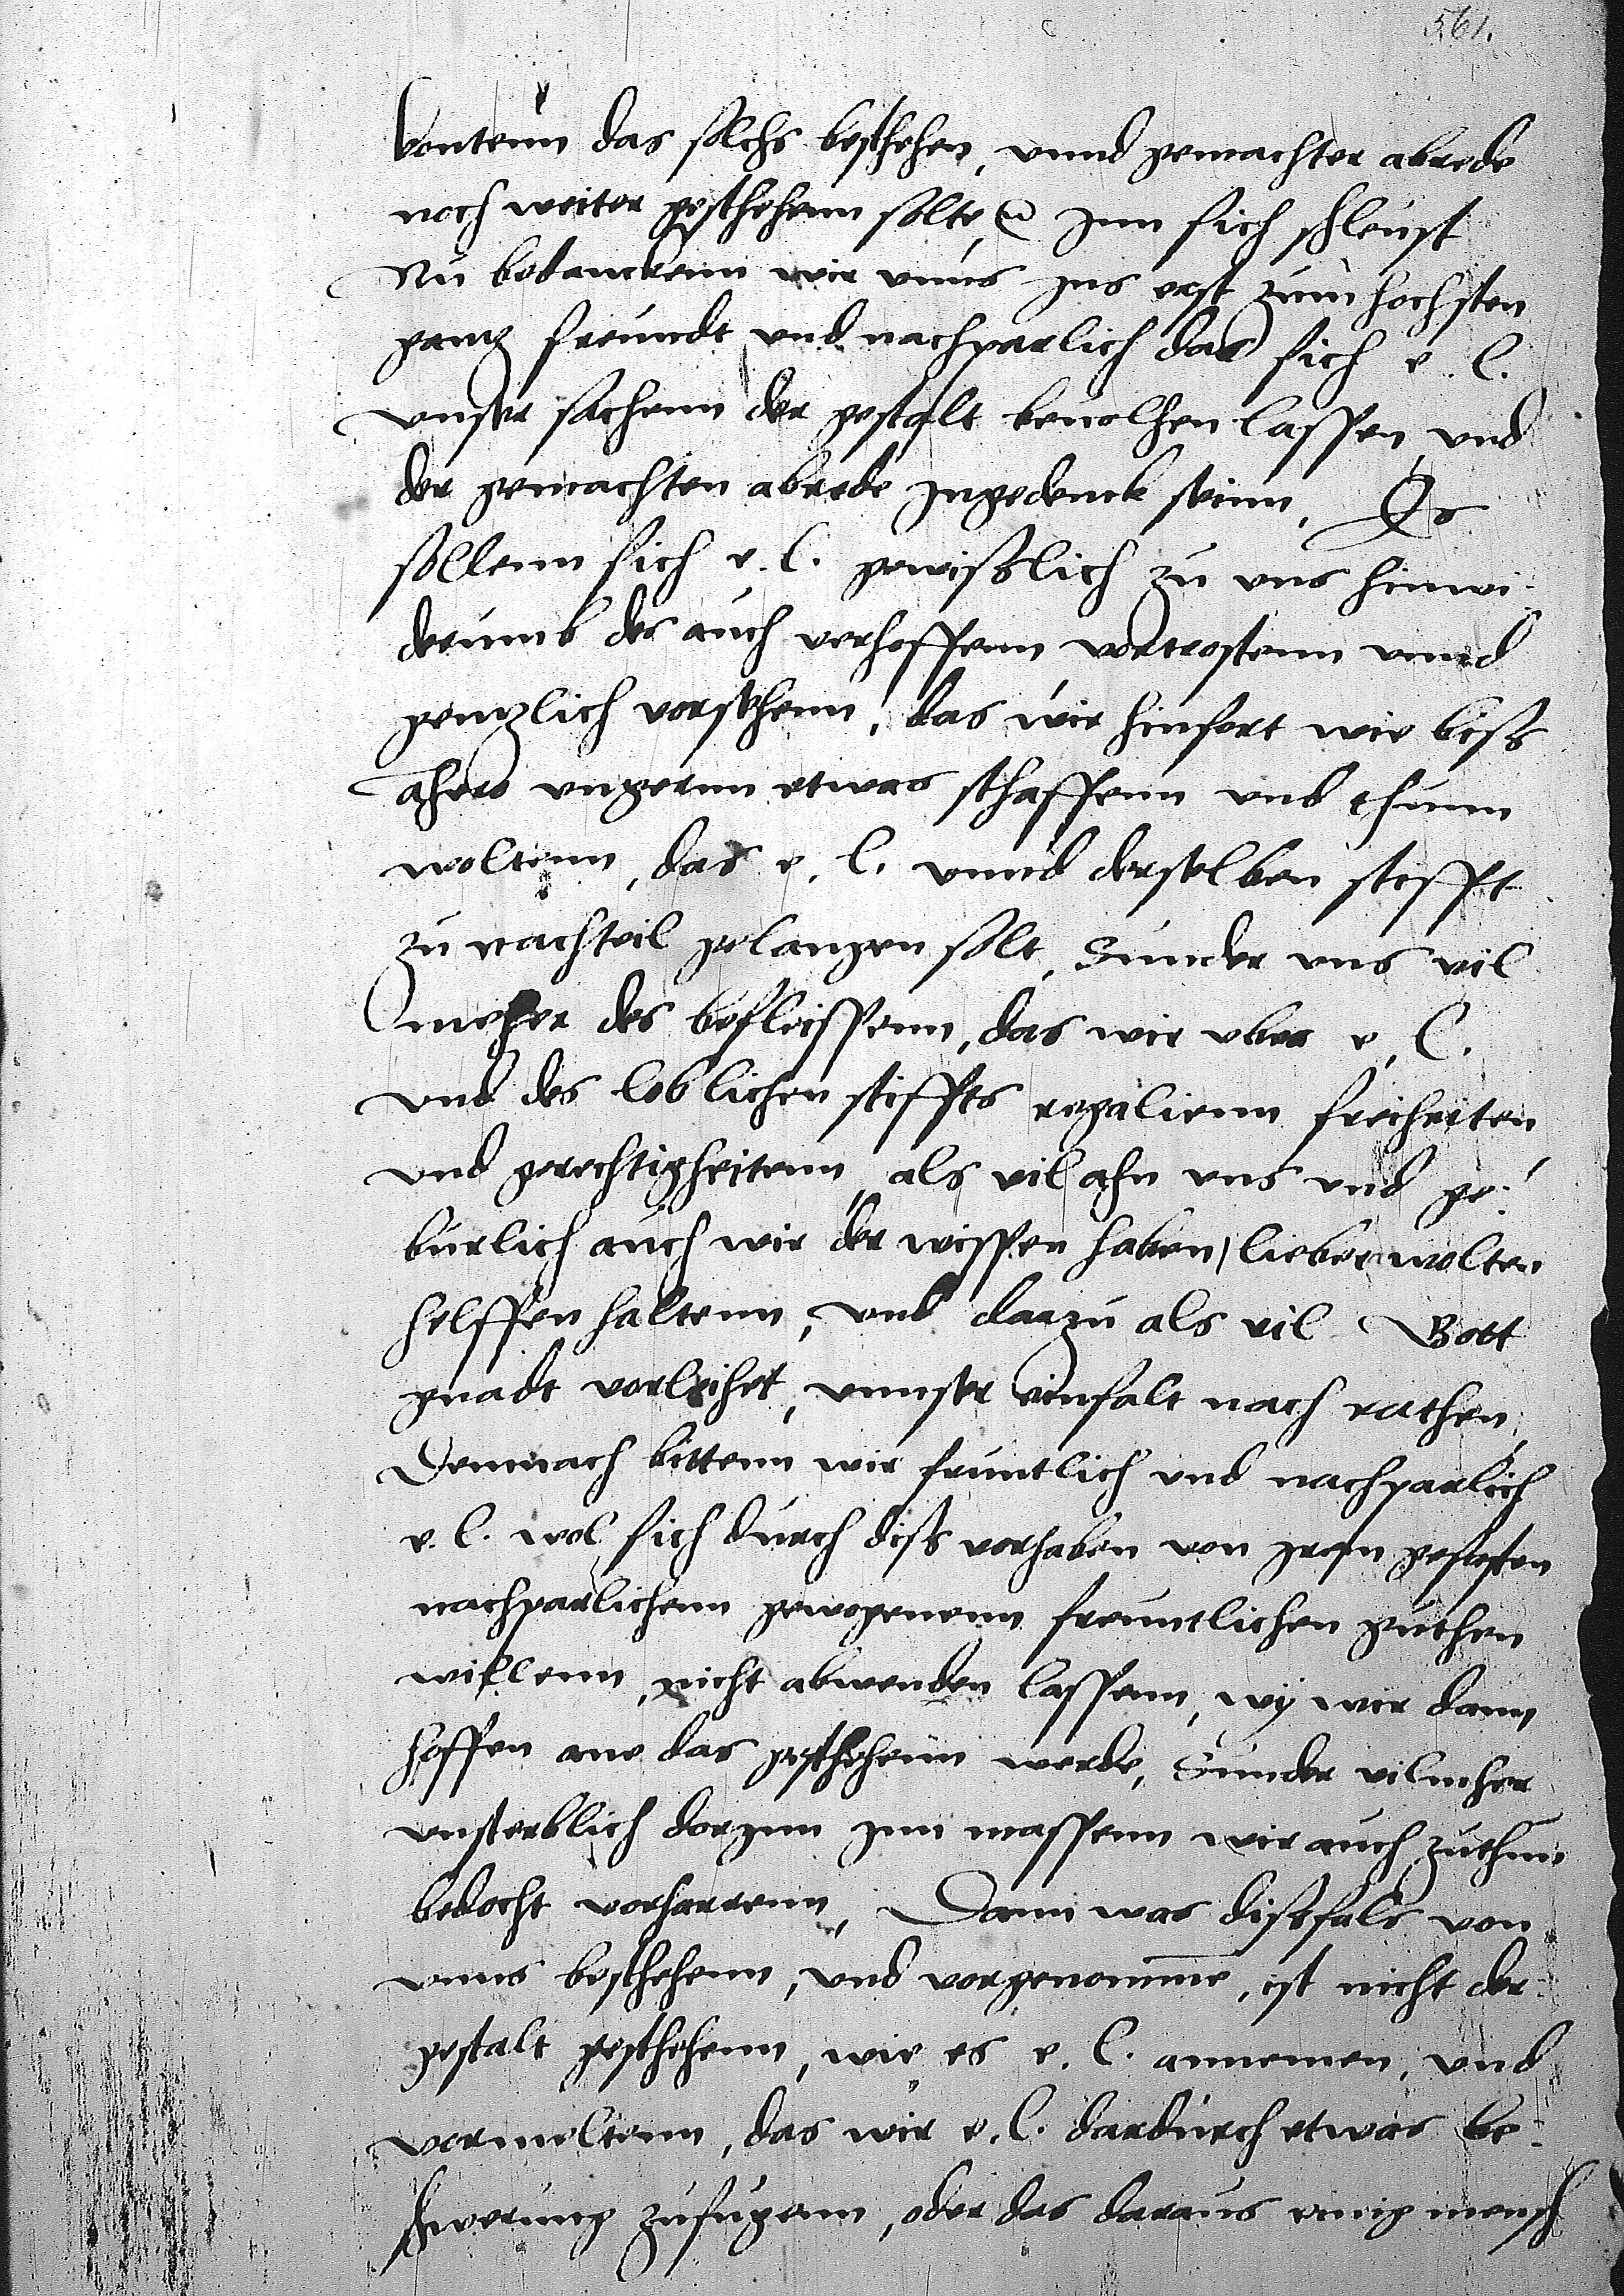 561.
kontenn das solchs beschehen, unnd gemachter abrede
noch weiter geschehenn solte, inn sich schleust
Nu bedanckenn wir unns ins erst zum hochsten
gantz freundt und nachparlich das sich e. l.
unser sachenn der gestalt bevolhen lassen, und
der gemachten abrede ingedenck seinn, Es
sollenn sich e. l. gewißlich zu uns hinwi-
derumb des auch verhoffenn vortrostenn unnd
gentzlich vorsehenn, das wir hinfort wie biß
ahero ungernn etwas schaffenn und thunn
woltenn, das e. l. unnd derselben stifft
zu nachteil gelangen solt, Sunder uns vil
meher des befleissenn, das wir uber e. l.
und des loblichen stiffts regalienn freiheiten
und gerechtigheitenn, als vil ahn uns und ge-
burlich auch wir der wissen haben, lieber wolten
helffen haltenn, und darzu als vil Gott
gnadt vorleihet, unnser einfalt nach rathen,
Demnach bittenn wir fruntlich und nachparlich
e. l. wol sich durch diß vorhaben von iren gefasten
nachparlichenn gewogenenn freuntlichen guthen
willenn, nicht abwenden lassenn, wy wir dann
hoffen ane das geschehenn werde, Sunder vilmeher
unsterblich dorinn inn massenn wir auch zuthun
bedocht vorharrenn, Dann was dißfals von
unns beschehenn, und vorgenomme, ist nicht der-
gestalt geschehenn, wie es e. l. annemen, und
vormeltenn, das wir e. l. dardurch etwas be-
schwerung zufugenn, oder das daraus einig mensch